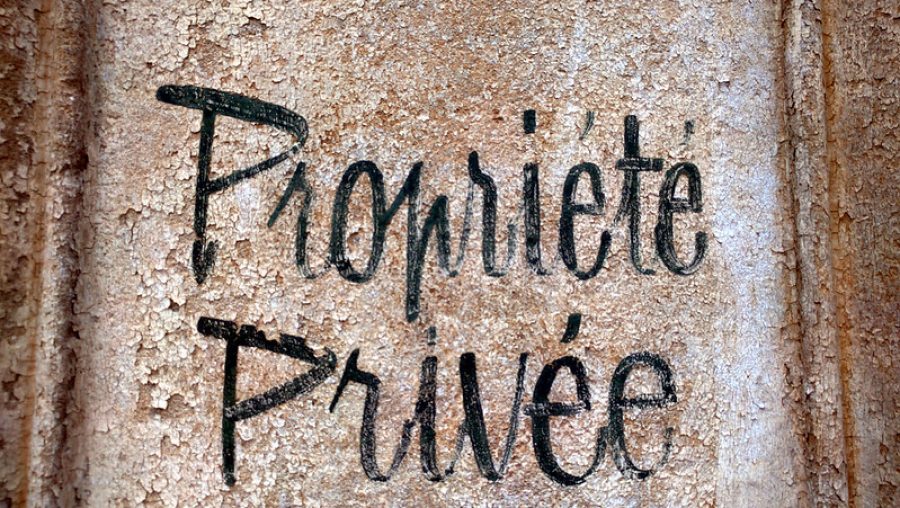 Propriété
Privée